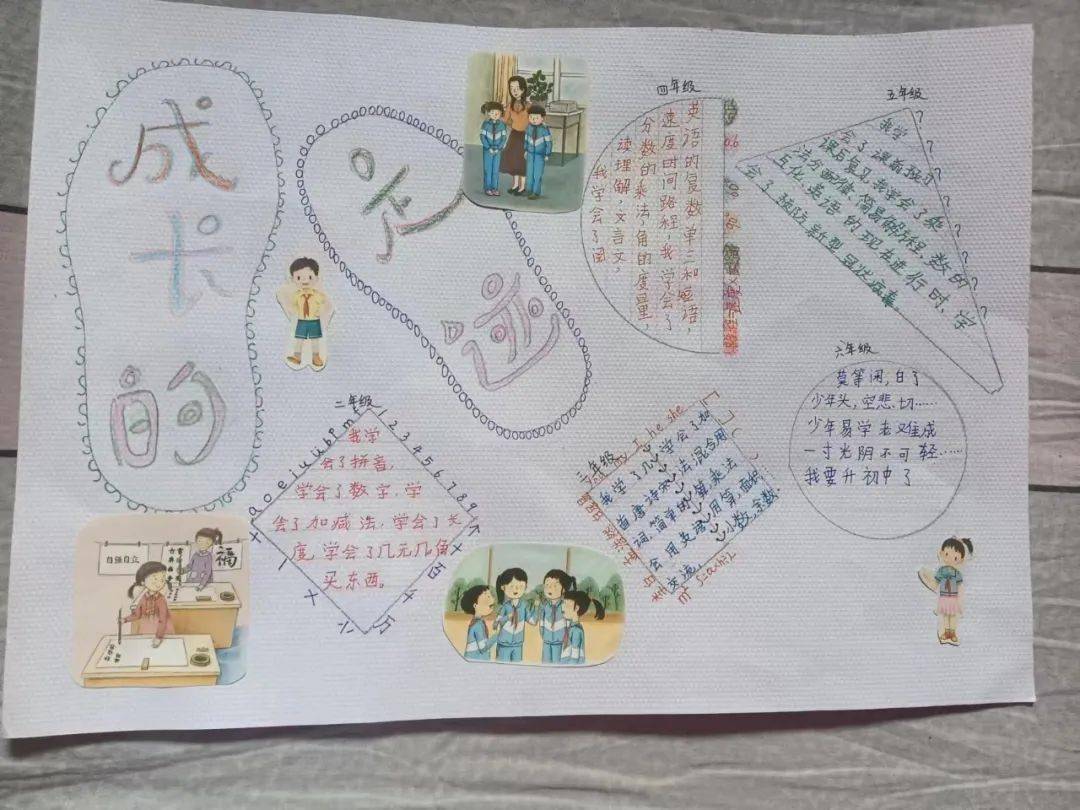 成长的
足迹
二年级
我学
会了拼音,
学会了数字,学
会了加减法,学会了长
度,学会了几元几角
买东西。
aoeiuübpm
123456789
三年级
my I he she
我学了几
学会了加
首唐诗和
词,简单的
会用英语
交流
四年级
英语的复数单三和短语,
速度时间路程,我学会了
分数的乘法角的度量,
读理解,文言文,
我学会了阅
五年级
我学
会了课前预习
课后复习我学会了乘
法分配律,简易解方程,数的
互化,英语的现在进行时,学
会了预防新型冠状病毒。
六年级
莫等闲,白了
少年头,空悲切……
少年易学老难成
一寸光阴不可轻……
我要升初中了
自强自立
福